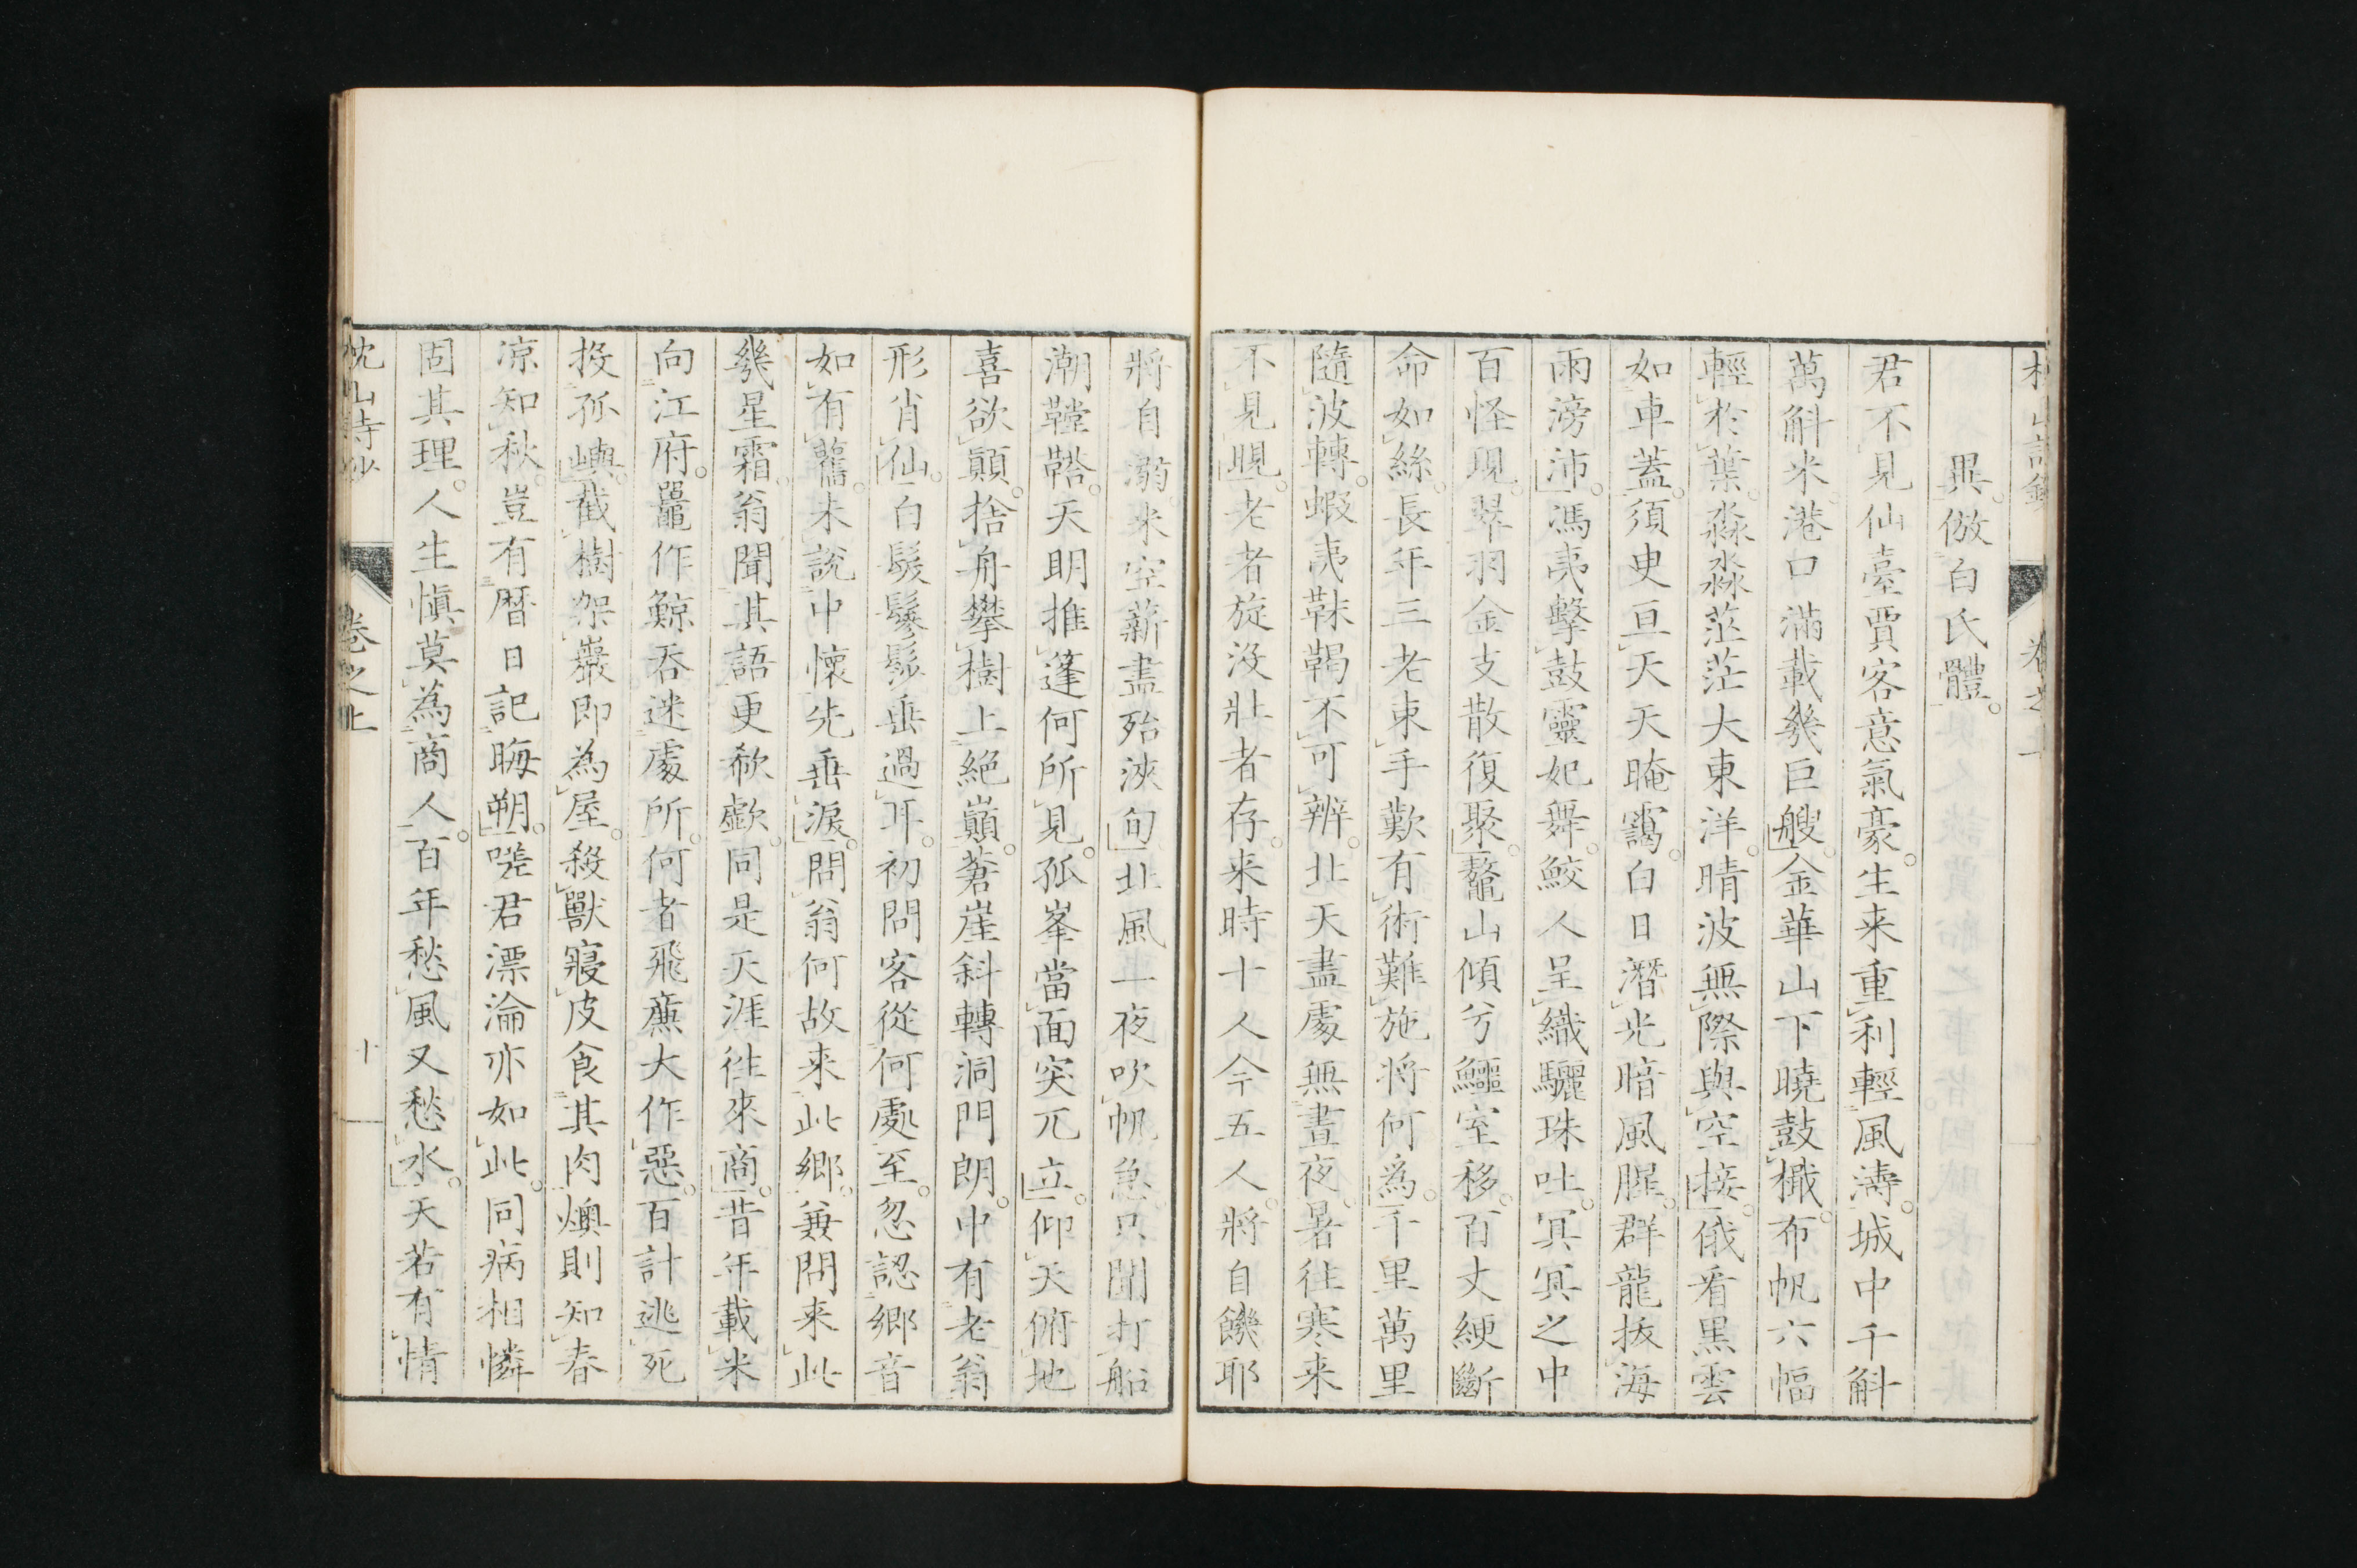 異。倣白氏體。
君不見仙臺賈客意氣豪。生来重利輕風濤。城中千斛
萬斛米港口滿載幾巨艘。金華山下曉鼓檝。布帆六幅
輕於葉。淼淼茫茫大東洋。晴波無際與空接。俄看黒雲
如車蓋。須臾亘天天晻靄。白日潛光暗風腥。群龍拔海
雨滂沛。馮夷擊鼓靈妃舞。鮫人呈織驪珠吐。冥冥之中
百怪現。翠羽金支散復聚。鼇山傾兮鱷室移。百丈綆斷
命如絲。長年三老束手歎。有術難施将何為。千里萬里
隨波轉。蝦夷靺鞨不可辨。北天盡處無晝夜。暑往寒来
不見晛。老者旋没壯者存。来時十人今五人。將自饑耶
將自溺。米空薪盡殆浹旬。北風一夜吹帆急。只聞打船
潮鞺鞳。天明推篷何所見。孤峯當面突兀立。仰天俯地
喜欲顛。捨舟攀樹上絕巔。蒼崖斜轉洞門朗。中有老翁
形肖仙。白髮鬖髿垂過耳。初問客從何處至。忽認鄉音
如有舊。未說中懷先垂淚。問翁何故来此鄉。兼問来此
幾星霜。翁聞其語更欷歔。同是天涯往來商。昔年載米
向江府。鼉作鯨吞迷處所。何者飛廉大作惡。百計逃死
投孤嶼。截樹架巖即為屋。殺獸寢皮食其肉燠則知春
凉知秋。豈有暦日記晦朔。嗟君漂淪亦如此。同病相憐
固其理。人生愼莫為商人。百年愁風又愁水。天若有情
枕山詩鈔
卷之上
十